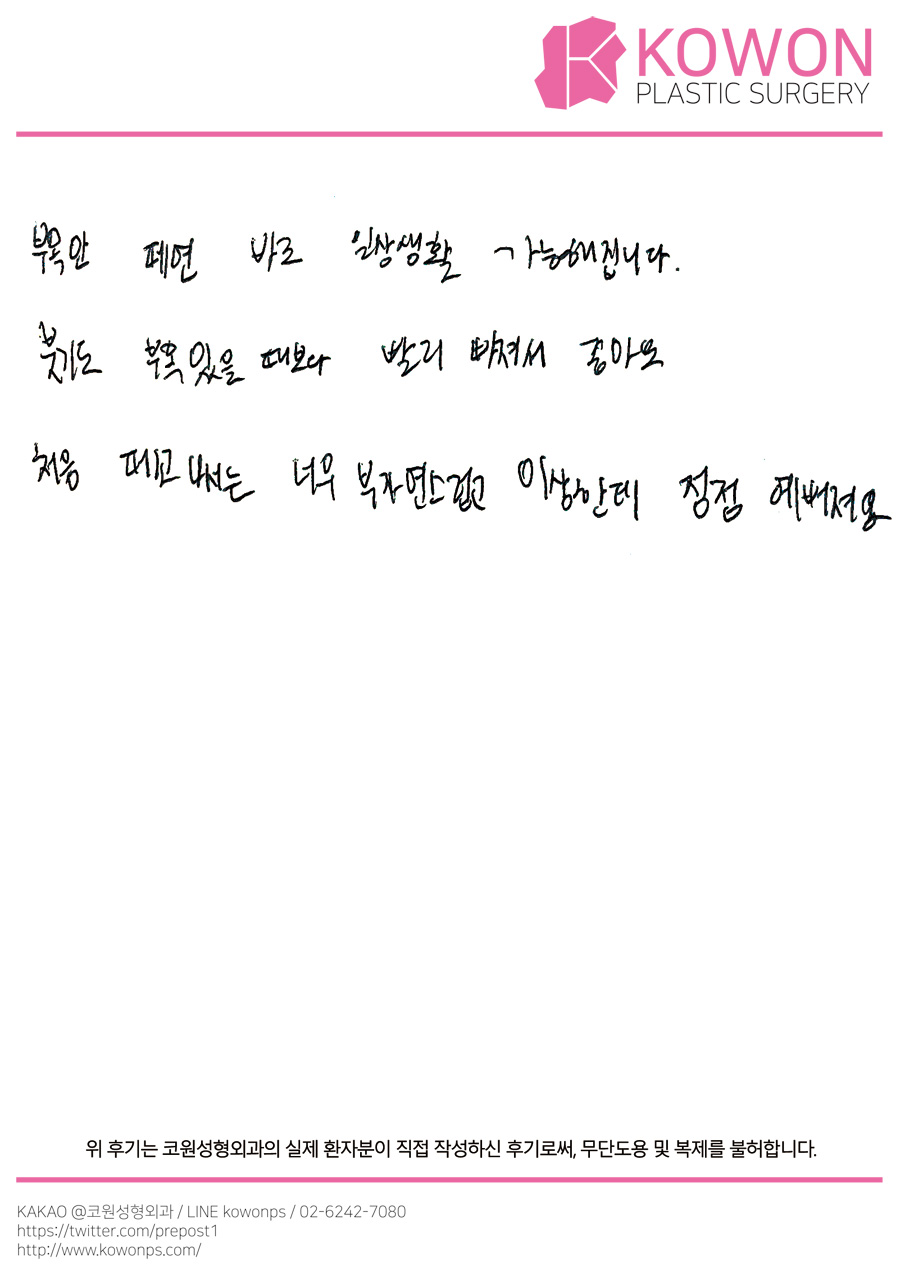 KOWON
PLASTIC SURGERY
부목만 떼면 바로 일상생활 가능해집니다.
붓기도 부목있을 때보다 빨리 빠져서 좋아요
처음 떼고 나서는 너무 부자연스럽고 이상한데 점점 예뻐져요
위 후기는 코원성형외과의 실제 환자분이 직접 작성하신 후기로써, 무단도용 및 복제를 불허합니다.
KAKAO @코원성형외과 / LINE kowonps / 02-6242-7080
https://twitter.com/prepost1
http://www.kowonps.com/